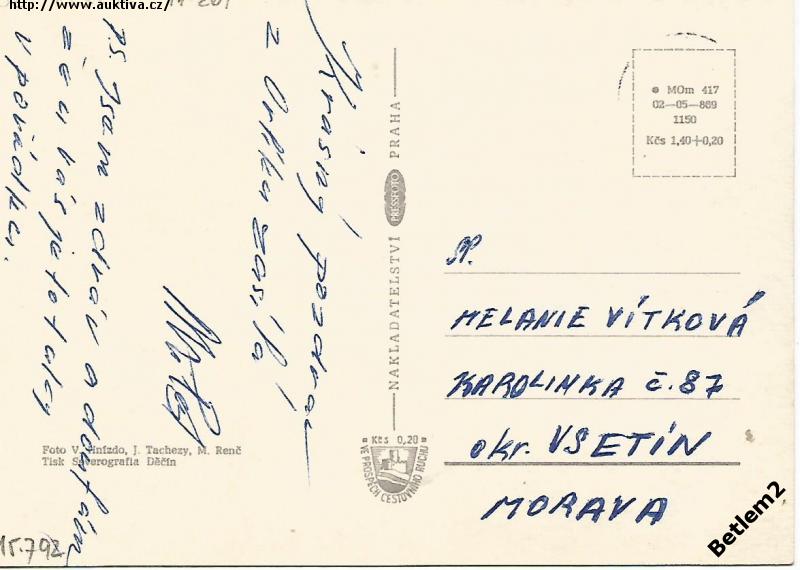 http://www.auktiva.cz/
Krásný pozdrav
z Orlíku zasílá
P.S. Jsem zdráv a doufám
že u vás je to taky
v pořádku.
NAKLADATELSTVÍ PRESSFOTO PRAHA
MOm 417
02-05-869
1150
Kčs 1,40+0,20
P.
MELANIE VÍTKOVÁ
KAROLINKA č. 87
okr. VSETÍN
MORAVA
Foto V. Hnízdo, J. Tachezy, M. Renč
Tisk Severografia Děčín
Kčs 0,20
VE PROSPĚCH CESTOVNÍHO RUCHU
15.792
Betlem2